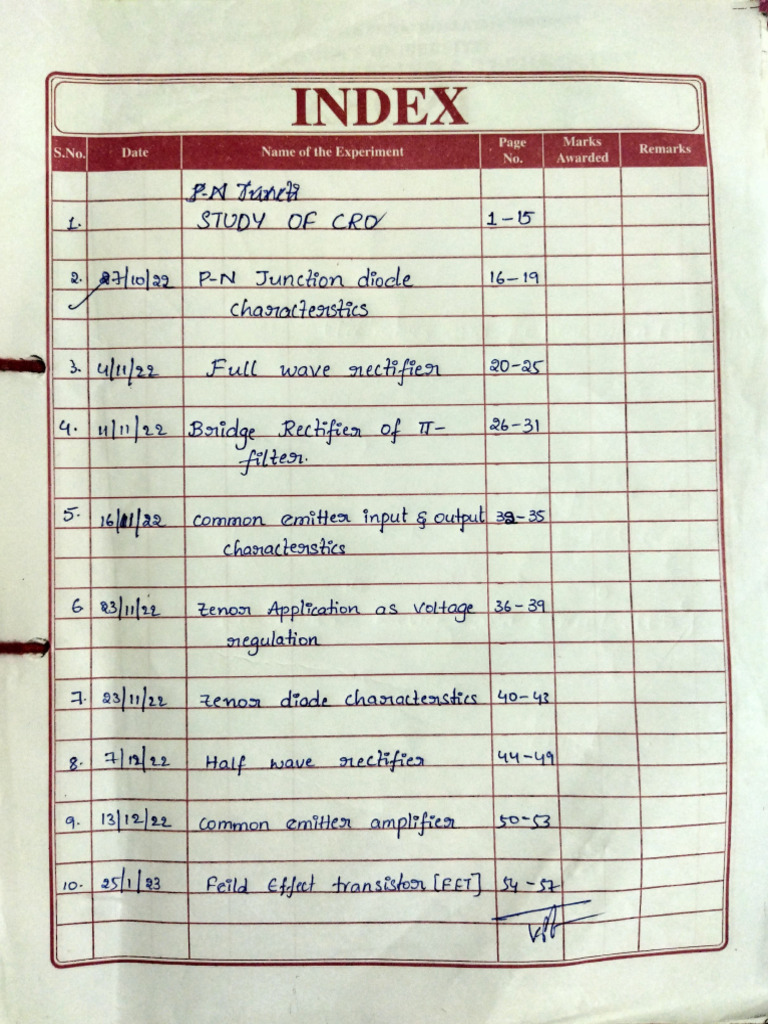 INDEX
S.No. Date Name of the Experiment Page No. Marks Awarded Remarks
P-N Juncti
1. STUDY OF CRO 1-15
2. 27/10/22 P-N Junction diode 16-19
characterstics
3. 4/11/22 Full wave rectifier 20-25
4. 11/11/22 Bridge Rectifier of π- 26-31
filter.
5. 16/11/22 common emitter input & output 32-35
characterstics
6 23/11/22 Zenor Application as voltage 36-39
regulation
7. 23/11/22 Zenor diode characterstics 40-43
8. 7/12/22 Half wave rectifier 44-49
9. 13/12/22 common emitter amplifier 50-53
10. 25/1/23 Feild Effect transistor [FET] 54-57